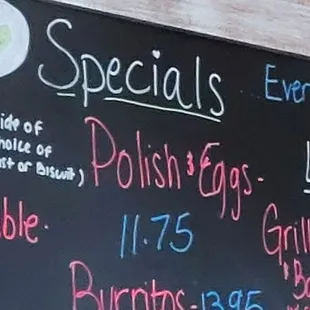 Specials
Ever
ide of
hoice of
st or Biscuit)
Polish & Eggs -
ble.
11.75
Grill
&
Burritos - 13.95